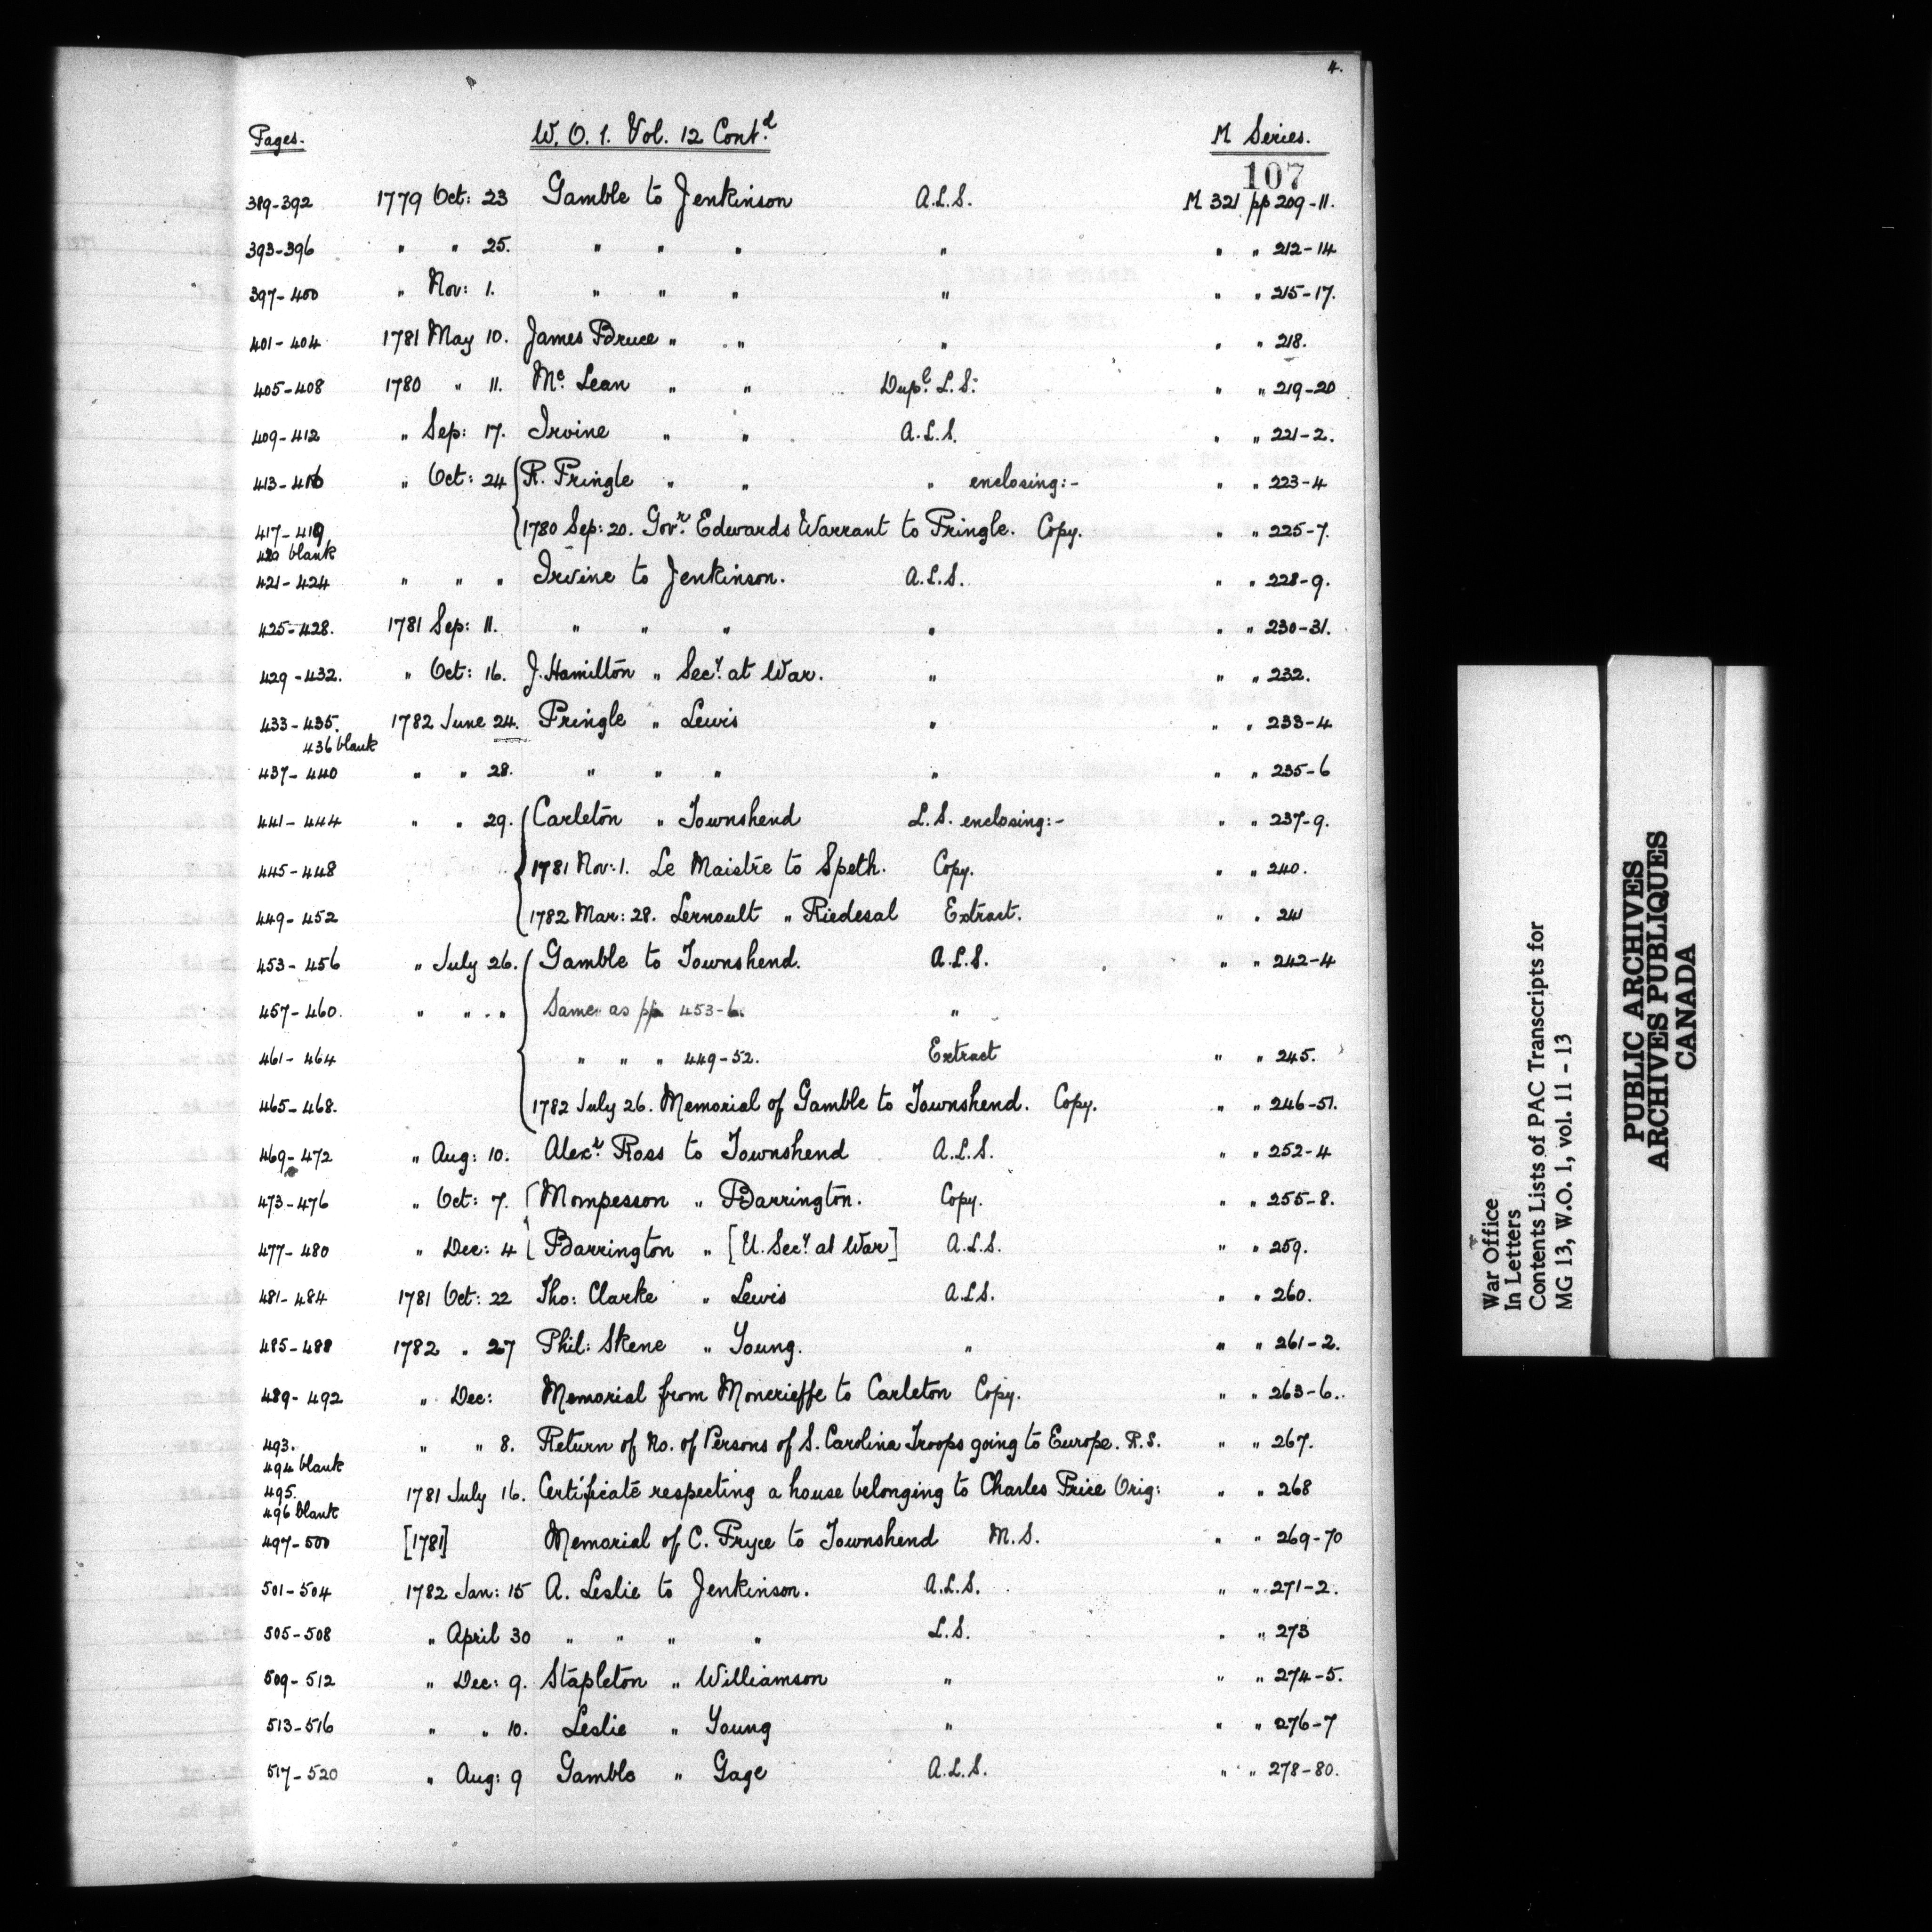 4.
Pages. W. O. 1. Vol. 12 Cont.d M Series.
107
389-392 1779 Oct: 23 Gamble to Jenkinson A.L.S. M 321 pp 209-11.
393-396 " " 25. " " " " " " 212-14
397-400 " Nov: 1. " " " " " " 215-17.
401-404 1781 May 10. James Bruce " " " " " 218.
405-408 1780 " 11. Mc. Lean " " Dupl. L.S: " " 219-20
409-412 " Sep: 17. Irvine " " A.L.S. " " 221-2.
413-416 " Oct: 24 R. Pringle " " " enclosing:- " " 223-4
417-419 1780 Sep: 20. Govr. Edwards Warrant to Pringle. Copy. " " 225-7.
420 blank
421-424 " " " Irvine to Jenkinson. A.L.S. " " 228-9.
425-428. 1781 Sep: 11. " " " " " " 230-31.
429-432. " Oct: 16. J. Hamilton " Secy. at War. " " " 232.
433-435. 1782 June 24. Pringle " Lewis " " " 233-4
436 blank
437-440 " " 28. " " " " " " 235-6
441-444 " " 29. Carleton " Townshend L.S. enclosing:- " " 237-9.
445-448 1781 Nov: 1. Le Maistre to Speth. Copy. " " 240.
449-452 1782 Mar: 28. Lernoult " Riedesal Extract. " " 241
453-456 " July 26. Gamble to Townshend. A.L.S. " " 242-4
457-460. " " " Same as pp 453-6. "
461-464 " " " 449-52. Extract " " 245.
465-468. 1782 July 26. Memorial of Gamble to Townshend. Copy. " " 246-51.
469-472 " Aug: 10. Alexr. Ross to Townshend A.L.S. " " 252-4
473-476 " Oct: 7. Mompesson " Barrington. Copy. " " 255-8.
477-480 " Dec: 4 Barrington " [U. Secy. at War] A.L.S. " " 259.
481-484 1781 Oct: 22 Tho: Clarke " Lewis A.L.S. " " 260.
485-488 1782 " 27 Phil: Skene " Young. " " " 261-2.
489-492 " Dec: Memorial from Moncrieffe to Carleton Copy. " " 263-6.
493. " " 8. Return of No. of Persons of S. Carolina Troops going to Europe. R.S. " " 267.
494 blank
495. 1781 July 16. Certificate respecting a house belonging to Charles Price Orig: " " 268
496 blank
497-500 [1781] Memorial of C. Pryce to Townshend M.S. " " 269-70
501-504 1782 Jan: 15 A. Leslie to Jenkinson. A.L.S. " " 271-2.
505-508 " April 30 " " " " L.S. " " 273
509-512 " Dec: 9. Stapleton " Williamson " " " 274-5.
513-516 " " 10. Leslie " Young " " " 276-7
517-520 " Aug: 9 Gamble " Gage A.L.S. " " 278-80.
War Office
In Letters
Contents Lists of PAC Transcripts for
MG 13, W.O. 1, vol. 11 - 13
PUBLIC ARCHIVES
ARCHIVES PUBLIQUES
CANADA